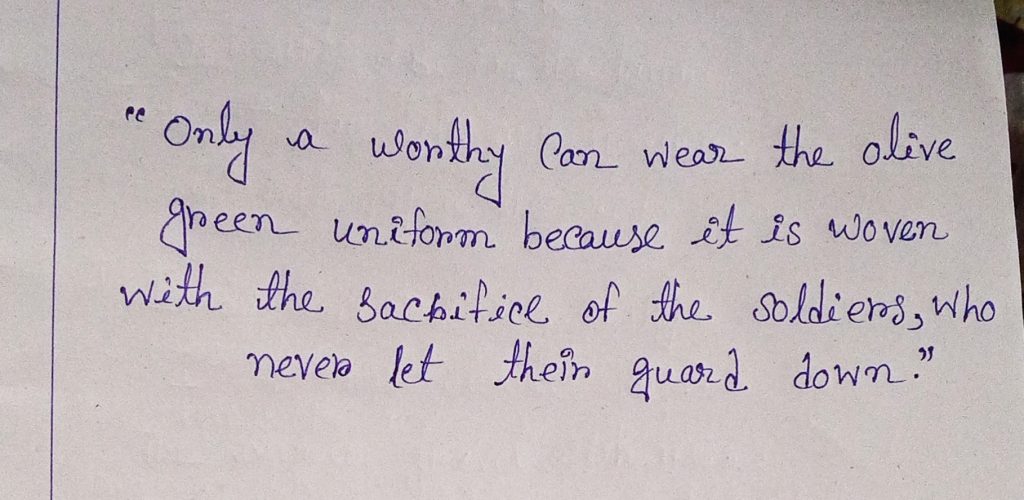 "Only a worthy can wear the olive
green uniform because it is woven
with the sacrifice of the soldiers, who
never let their guard down."